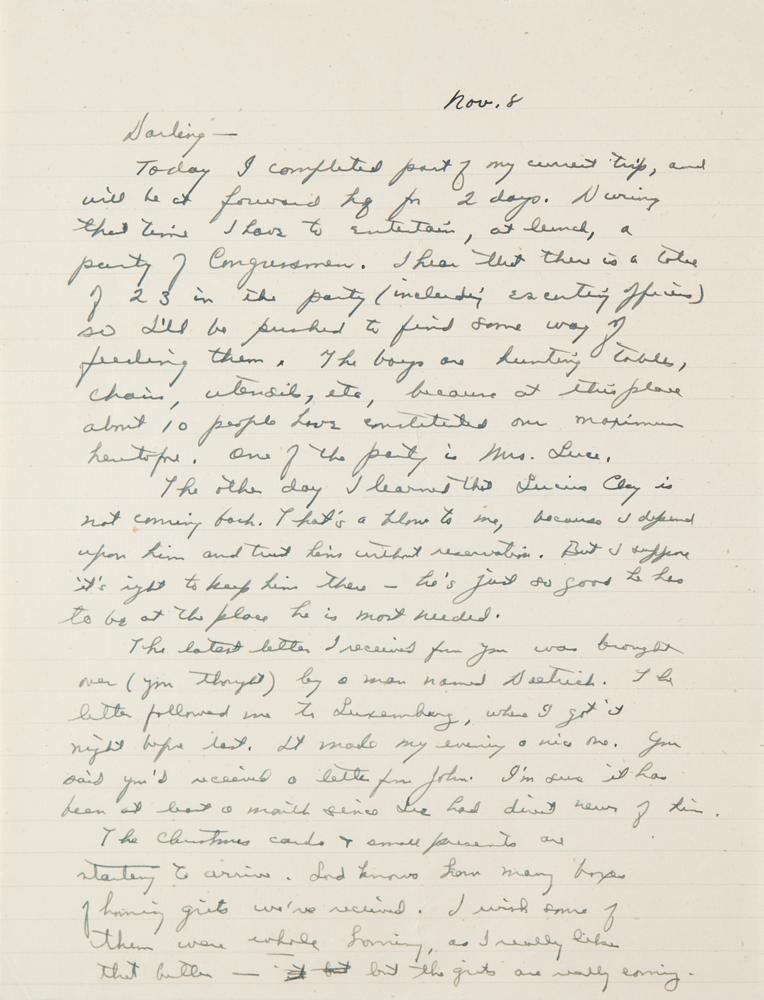 Nov. 8
Darling —
Today I completed part of my current trip, and
will be at forward hq for 2 days. During
that time I have to entertain, at lunch, a
party of Congressmen. I hear that there is a total
of 23 in the party (including escorting officers)
so I'll be pushed to find some way of
feeding them. The boys are hunting tables,
chairs, utensils, etc, because at this place
about 10 people have constituted our maximum
heretofore. One of the party is Mrs. Luce.
The other day I learned that Lucius Clay is
not coming back. That's a blow to me, because I depend
upon him and trust him without reservation. But I suppose
it's right to keep him there — he's just so good he has
to be at the place he is most needed.
The latest letter I received from you was brought
over (you thought) by a man named Dietrich. The
letter followed me to Luxemburg, where I got it
night before last. It made my evening a nice one. You
said you'd received a letter from John. I'm sure it has
been at least a month since I've had direct news of him.
The Christmas cards & small presents are
starting to arrive. Lord knows how many boxes
of hominy grits we've received. I wish some of
them were whole hominy, as I really like
that better — but the grits are really coming.